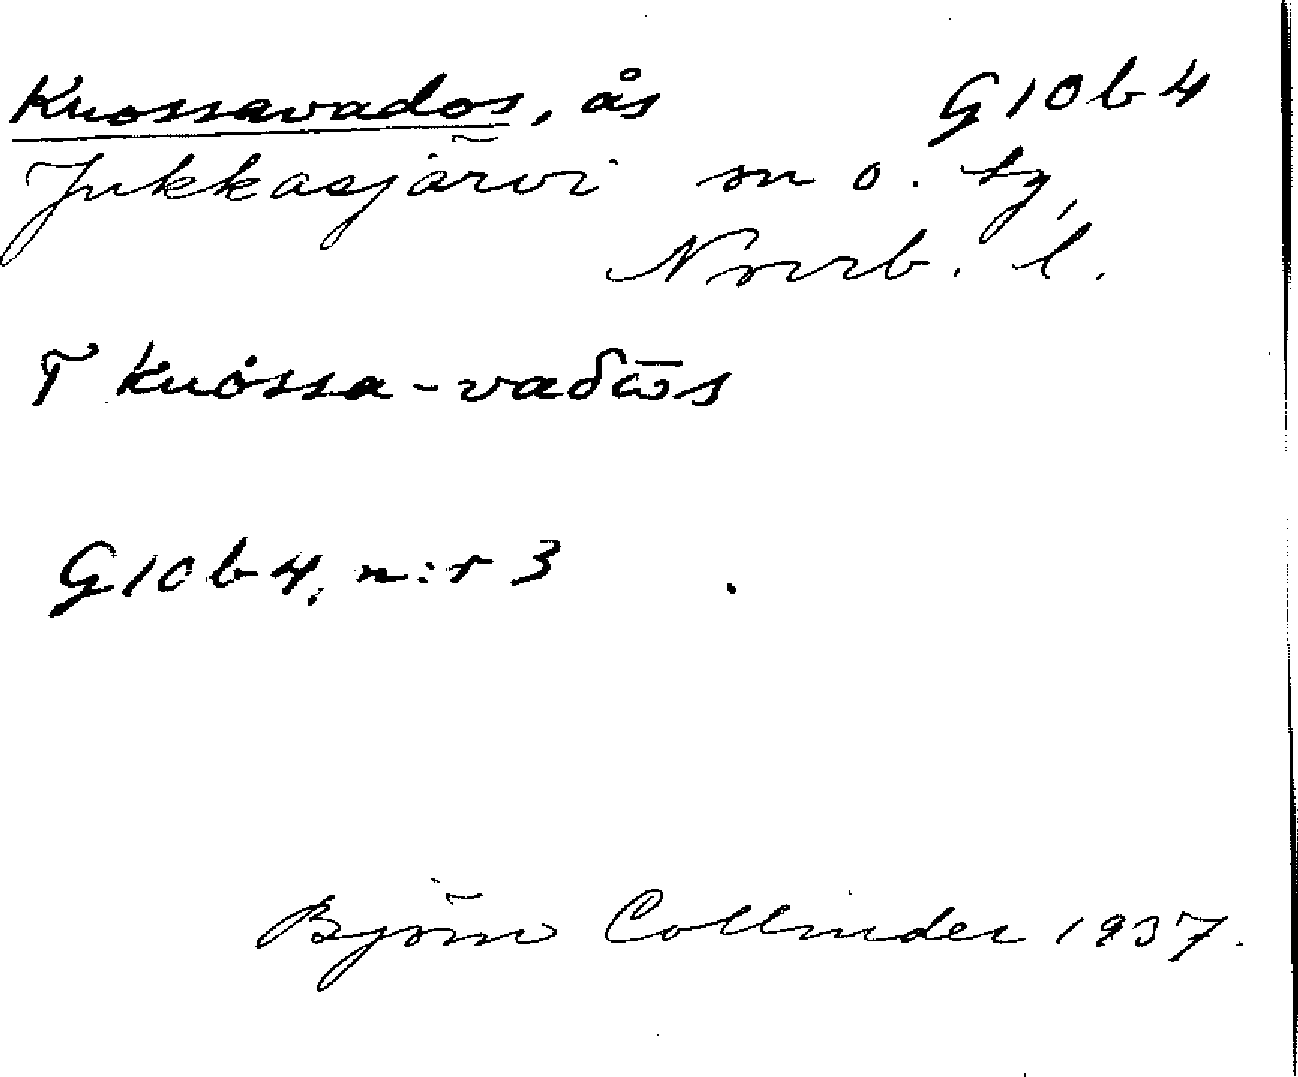 Kuossavados, ås G10b4
Jukkasjärvi sn o. tg,
Norrb. l.
T kuossa-vaδω̄s
G10b4, n:r 3
Björn Collinder 1937.